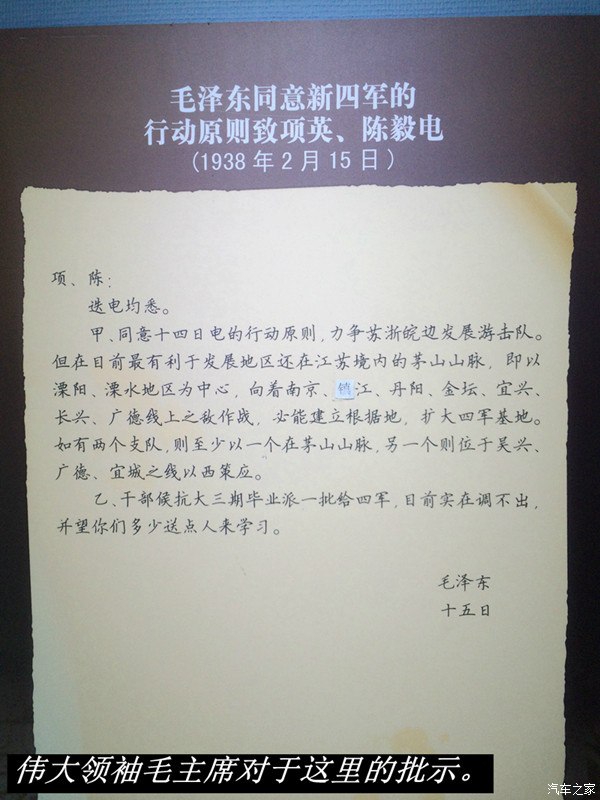 毛泽东同意新四军的
行动原则致项英、陈毅电
(1938年2月15日)
项、陈：
迭电均悉。
甲、同意十四日电的行动原则，力争苏浙皖边发展游击队。
但在目前最有利于发展地区还在江苏境内的茅山山脉，即以
溧阳、溧水地区为中心，向着南京、镇江、丹阳、金坛、宜兴、
长兴、广德线上之敌作战，必能建立根据地，扩大四军基地。
如有两个支队，则至少以一个在茅山山脉，另一个则位于吴兴、
广德、宜城之线以西策应。
乙、干部候抗大三期毕业派一批给四军，目前实在调不出，
并望你们多少送点人来学习。
毛泽东
十五日
伟大领袖毛主席对于这里的批示。
汽车之家